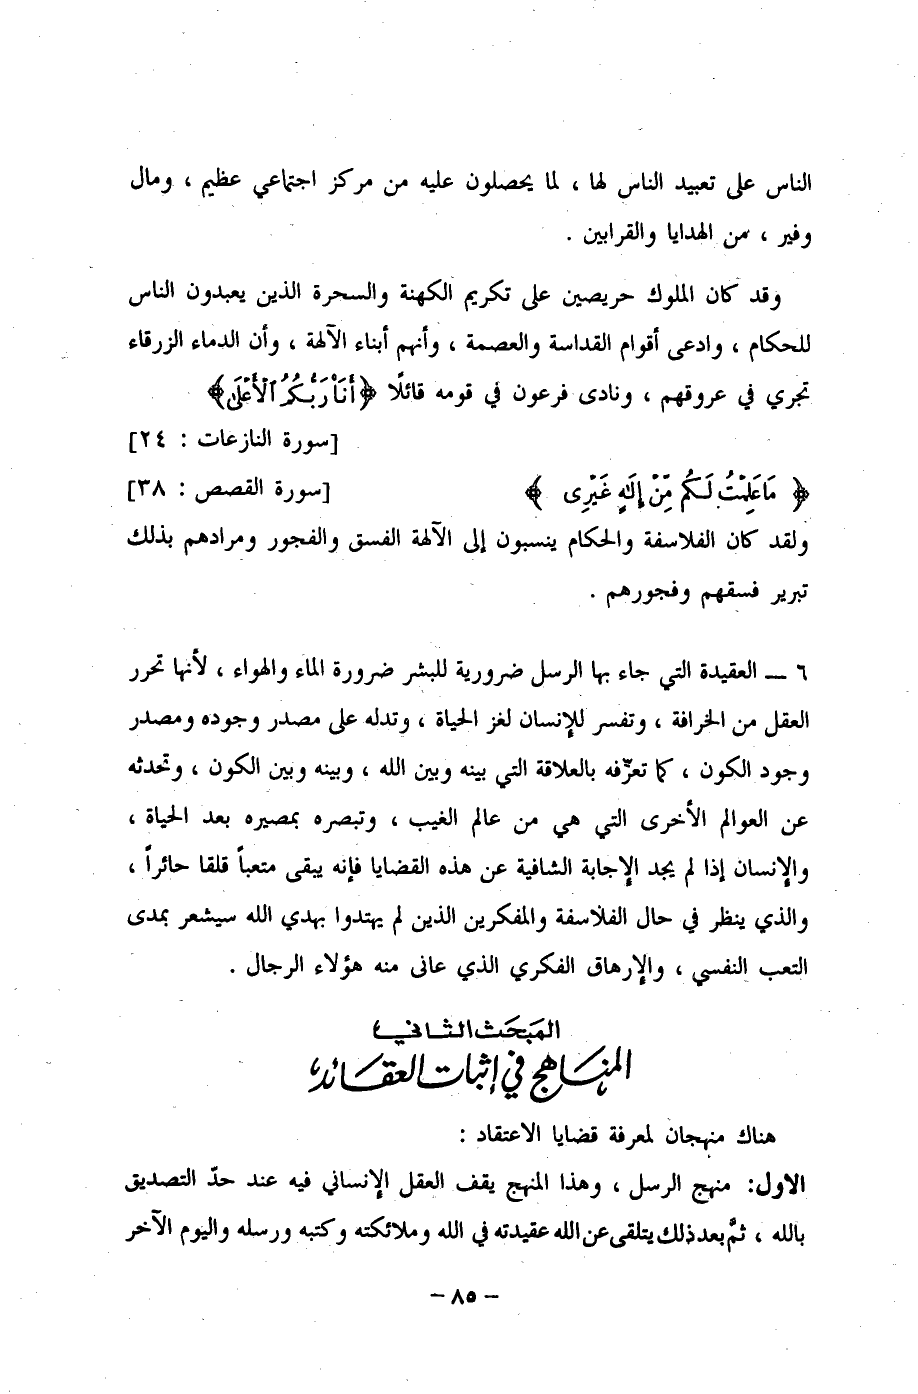 الناس على تعبيد الناس لها ، لما يحصلون عليه من مركز اجتماعي عظيم ، ومال
وفير ، من الهدايا والقرابين .
وقد كان الملوك حريصين على تكريم الكهنة والسحرة الذين يعبدون الناس
للحكام ، وادعى أقوام القداسة والعصمة ، وأنهم أبناء الآلهة ، وأن الدماء الزرقاء
تجري في عروقهم ، ونادى فرعون في قومه قائلًا ﴿أَنَا۠ رَبُّكُمُ ٱلْأَعْلَىٰ﴾
[سورة النازعات : ٢٤]
﴿ مَاعَلِمْتُ لَكُم مِّنْ إِلَٰهٍ غَيْرِى ﴾ [سورة القصص : ٣٨]
ولقد كان الفلاسفة والحكام ينسبون إلى الآلهة الفسق والفجور ومرادهم بذلك
تبرير فسقهم وفجورهم .
٦ ــ العقيدة التي جاء بها الرسل ضرورية للبشر ضرورة الماء والهواء ، لأنها تحرر
العقل من الخرافة ، وتفسر للإنسان لغز الحياة ، وتدله على مصدر وجوده ومصدر
وجود الكون ، كما تعرّفه بالعلاقة التي بينه وبين الله ، وبينه وبين الكون ، وتحدثه
عن العوالم الأخرى التي هي من عالم الغيب ، وتبصره بمصيره بعد الحياة ،
والإنسان إذا لم يجد الإجابة الشافية عن هذه القضايا فإنه يبقى متعباً قلقا حائراً ،
والذي ينظر في حال الفلاسفة والمفكرين الذين لم يهتدوا بهدي الله سيشعر بمدى
التعب النفسي ، والإرهاق الفكري الذي عانى منه هؤلاء الرجال .
المبَحَث الثاني
المناهج في إثبات العقائد
هناك منهجان لمعرفة قضايا الاعتقاد :
الاول: منهج الرسل ، وهذا المنهج يقف العقل الإنساني فيه عند حدّ التصديق
بالله ، ثمَّ بعد ذلك يتلقى عن الله عقيدته في الله وملائكته وكتبه ورسله واليوم الآخر
– ٨٥ –